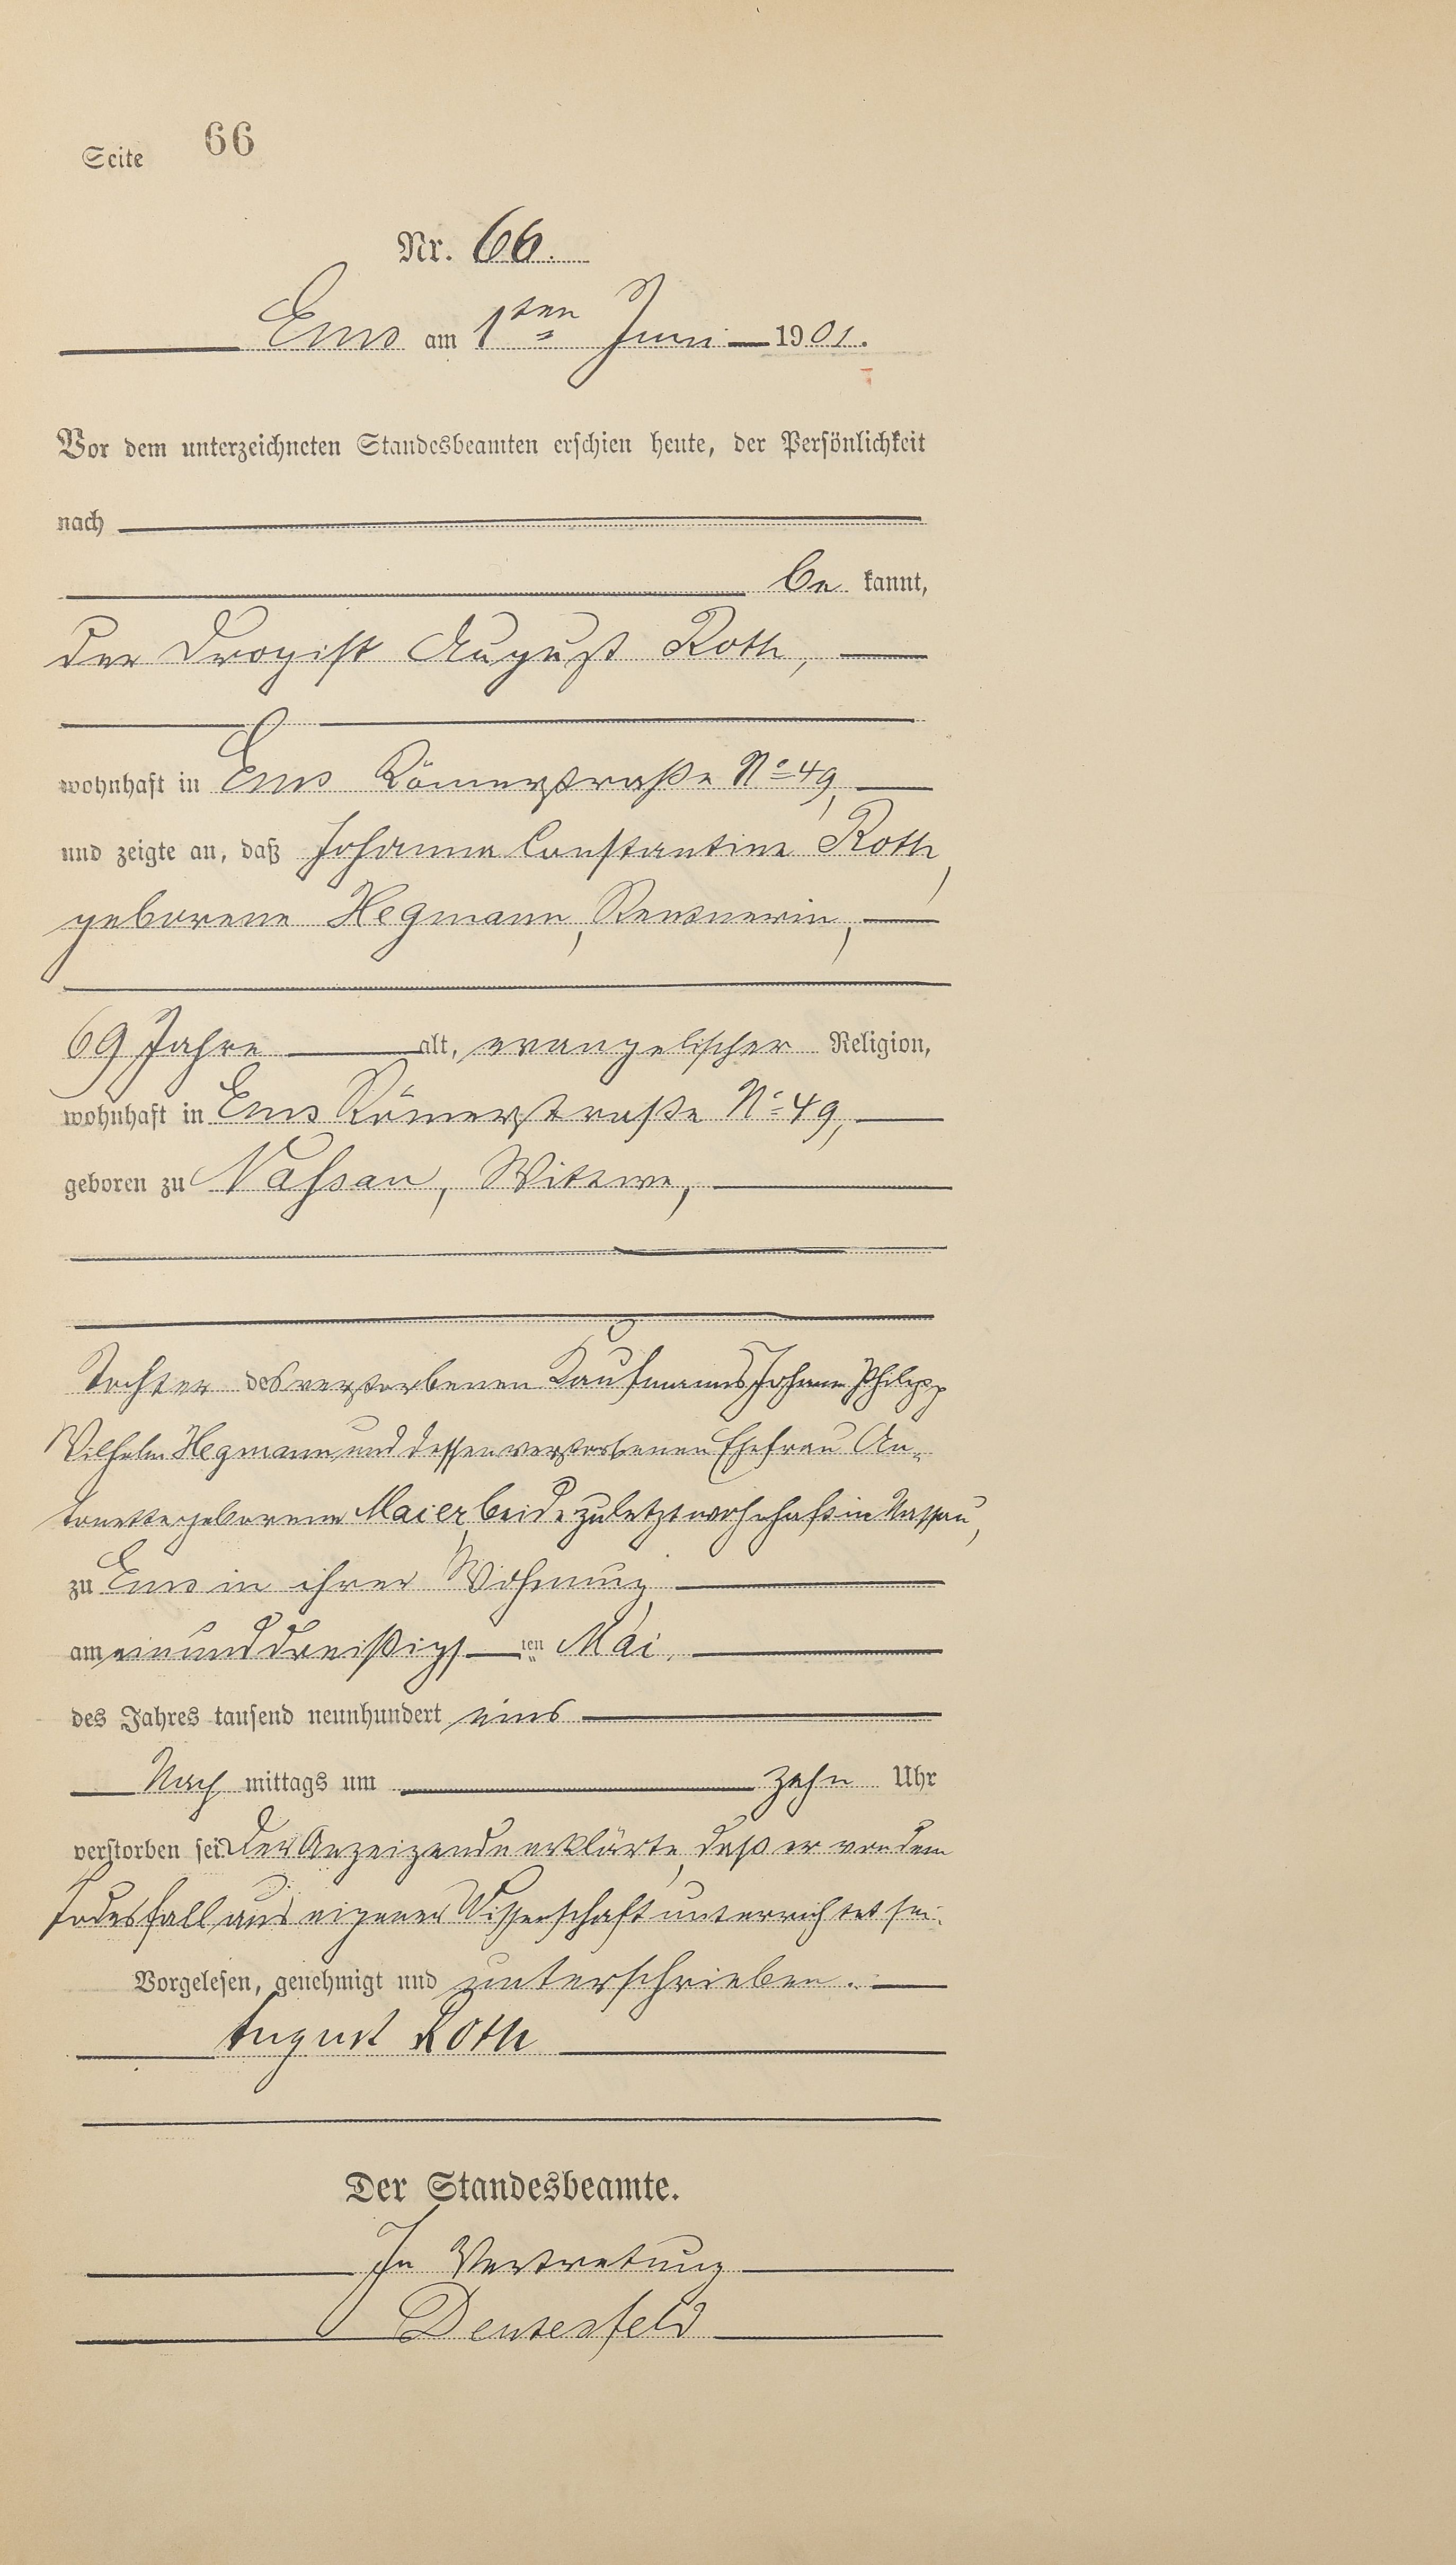 Seite 66
Nr. 66.
Ems am 1ten Juni 1901.
Vor dem unterzeichneten Standesbeamten erschien heute, der Persönlichkeit
nach
be kannt,
der Drogist August Roth,
wohnhaft in Ems Römerstraße No 49,
und zeigte an, daß Johanna Constantine Roth,
geborene Hegmann, Rentnerin,
69 Jahre alt, evangelischer Religion,
wohnhaft in Ems Römerstraße No 49,
geboren zu Nassau, Wittwe,
Tochter des verstorbenen Kaufmanns Johann Philipp
Wilhelm Hegmann und dessen verstorbenen Ehefrau An-
tonette geborene Maier, beide zuletzt wohnhaft in Nassau,
zu Ems in ihrer Wohnung,
am einunddreißigs ten Mai,
des Jahres tausend neunhundert eins
Nach mittags um zehn Uhr
verstorben sei. Der Anzeigende erklärte, daß er von dem
Todesfall aus eigener Wissenschaft unterrichtet sei.
Vorgelesen, genehmigt und unterschrieben.
August Roth
Der Standesbeamte.
In Vertretung